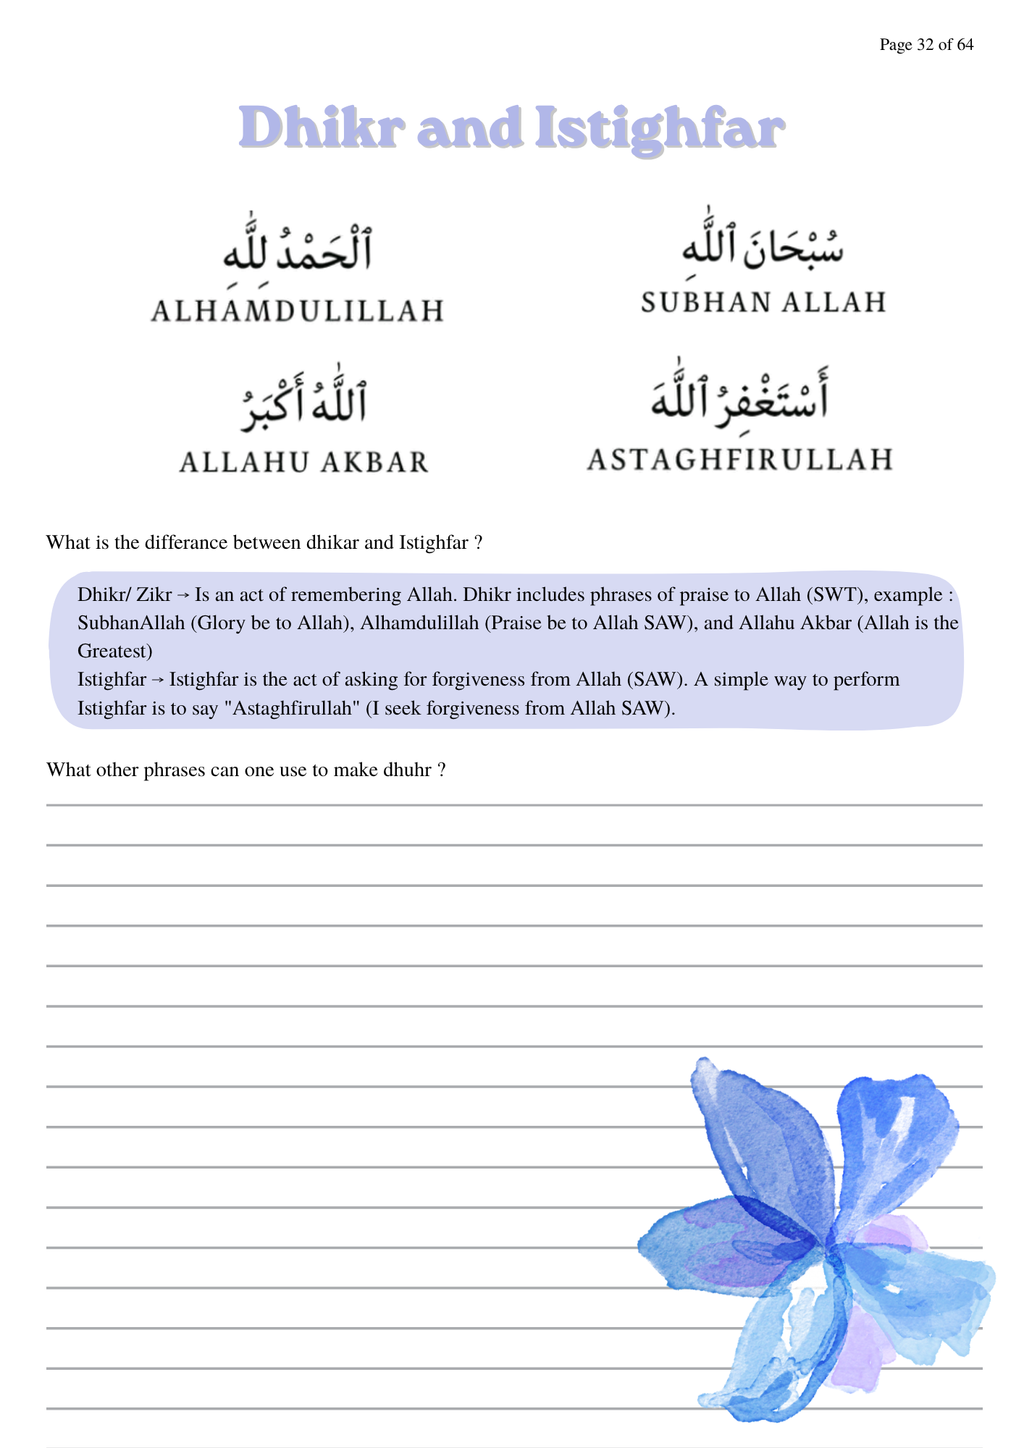 Page 32 of 64
Dhikr and Istighfar
ٱلْحَمْدُ لِلَّٰهِ
ALHAMDULILLAH
سُبْحَانَ ٱللَّٰهِ
SUBHAN ALLAH
ٱللَّٰهُ أَكْبَرُ
ALLAHU AKBAR
أَسْتَغْفِرُ ٱللَّٰهَ
ASTAGHFIRULLAH
What is the differance between dhikar and Istighfar ?
Dhikr/ Zikr → Is an act of remembering Allah. Dhikr includes phrases of praise to Allah (SWT), example :
SubhanAllah (Glory be to Allah), Alhamdulillah (Praise be to Allah SAW), and Allahu Akbar (Allah is the
Greatest)
Istighfar → Istighfar is the act of asking for forgiveness from Allah (SAW). A simple way to perform
Istighfar is to say "Astaghfirullah" (I seek forgiveness from Allah SAW).
What other phrases can one use to make dhuhr ?